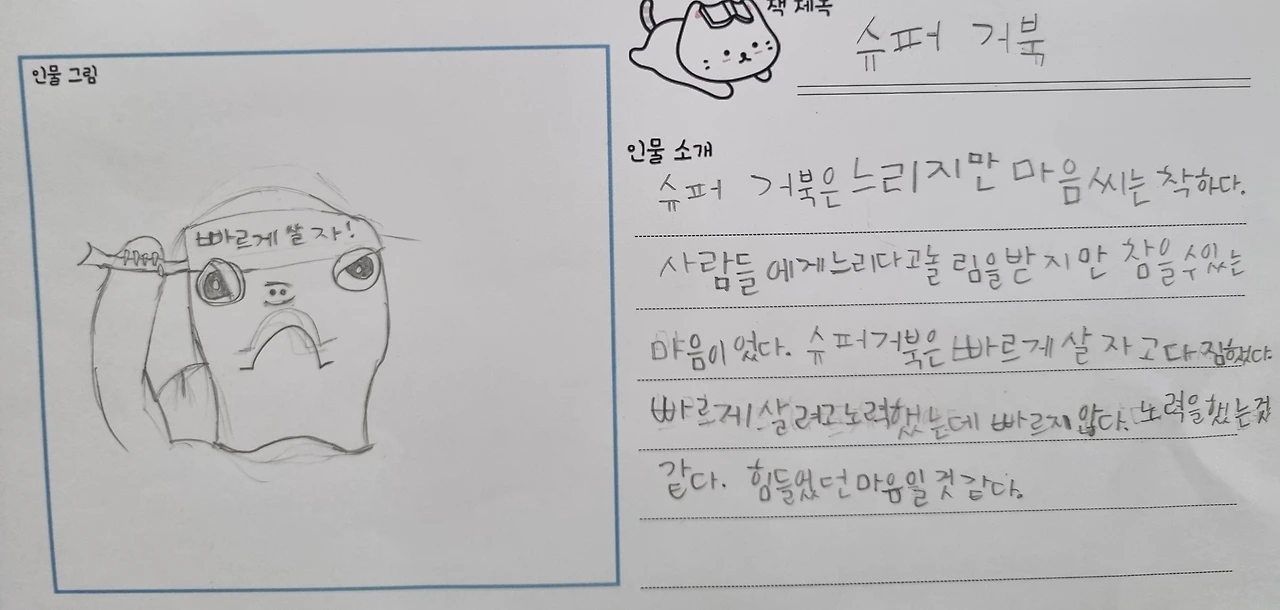 책 제목
슈퍼 거북
인물 그림
빠르게 쌀자!
인물 소개
슈퍼 거북은 느리지만 마음씨는 착하다.
사람들에게 느리다고 놀림을 받지만 참을 수 있는
마음이 었다. 슈퍼거북은 빠르게 살자고 다짐했다.
빠르게 살려고 노력했는데 빠르지 않다. 노력을 했는것
같다. 힘들었던 마음일 것 같다.